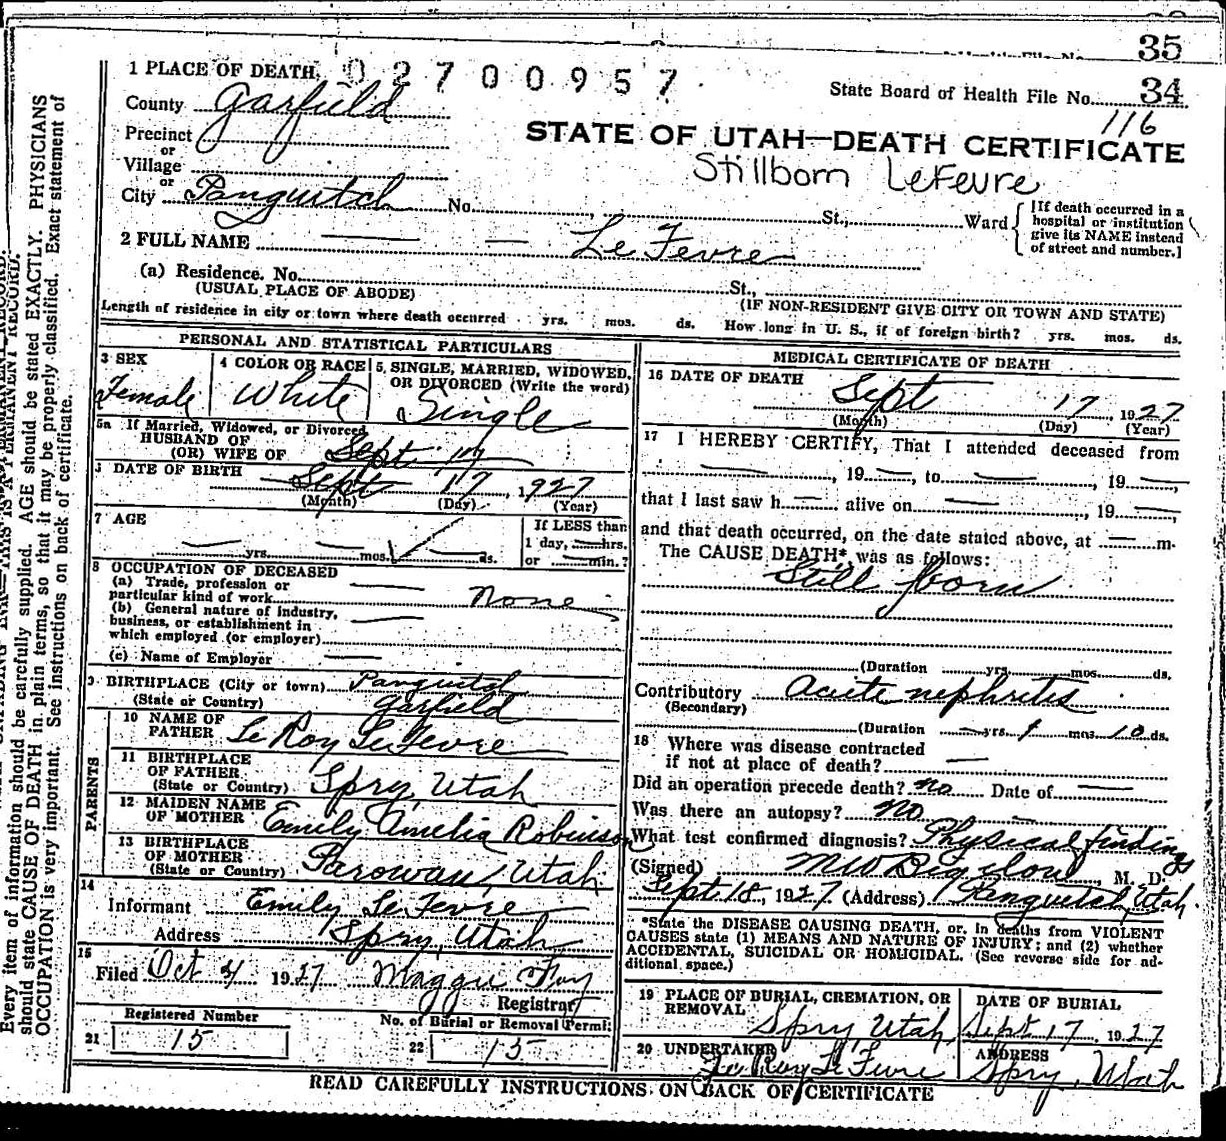 35
1 PLACE OF DEATH, 02700957
State Board of Health File No. 34
116
County Garfield
STATE OF UTAH—DEATH CERTIFICATE
Precinct
or
Village
Stillborn LeFevre
or
City Panguitch No. St., Ward
[If death occurred in a
hospital or institution
give its NAME instead
of street and number.]
2 FULL NAME — — Le Fevre
(a) Residence. No. St.,
(USUAL PLACE OF ABODE) (IF NON-RESIDENT GIVE CITY OR TOWN AND STATE)
Length of residence in city or town where death occurred yrs. mos. ds. How long in U. S., if of foreign birth? yrs. mos. ds.
PERSONAL AND STATISTICAL PARTICULARS
3 SEX
Female
4 COLOR OR RACE
White
5. SINGLE, MARRIED, WIDOWED,
OR DIVORCED (Write the word)
Single
5a If Married, Widowed, or Divorced
HUSBAND OF
(OR) WIFE OF Sept 17
DATE OF BIRTH
Sept 17, 1927
(Month) (Day) (Year)
7 AGE
— yrs. — mos. — ds.
If LESS than
1 day, — hrs.
or — min.?
8 OCCUPATION OF DECEASED
(a) Trade, profession or
particular kind of work — none
(b) General nature of industry,
business, or establishment in
which employed (or employer) —
(c) Name of Employer —
9 BIRTHPLACE (City or town) Panguitch
(State or Country) Garfield
PARENTS
10 NAME OF
FATHER Le Roy LeFevre
11 BIRTHPLACE
OF FATHER
(State or Country) Spry, Utah
12 MAIDEN NAME
OF MOTHER Emily Amelia Robinson
13 BIRTHPLACE
OF MOTHER
(State or Country) Parowan, Utah
14
Informant Emily LeFevre
Address Spry, Utah
15
Filed Oct 4 1927 Maggie Foy
Registrar
Registered Number
21 15
No. of Burial or Removal Permit
22 15
MEDICAL CERTIFICATE OF DEATH
16 DATE OF DEATH
Sept 17, 1927
(Month) (Day) (Year)
17 I HEREBY CERTIFY, That I attended deceased from
—, 19 —, to —, 19 —,
that I last saw h — alive on —, 19 —,
and that death occurred, on the date stated above, at — m.
The CAUSE DEATH* was as follows:
Still born
(Duration yrs. mos. ds.
Contributory Acute nephritis
(Secondary)
(Duration — yrs. 1 mos. 10 ds.
18 Where was disease contracted
if not at place of death? —
Did an operation precede death? no Date of —
Was there an autopsy? no —
What test confirmed diagnosis? Physical findings
(Signed) M W Bigelow, M. D.
Sept 18, 1927 (Address) Panguitch, Utah.
*State the DISEASE CAUSING DEATH, or, in deaths from VIOLENT
CAUSES state (1) MEANS AND NATURE OF INJURY; and (2) whether
ACCIDENTAL, SUICIDAL OR HOMICIDAL. (See reverse side for ad-
ditional space.)
19 PLACE OF BURIAL, CREMATION, OR
REMOVAL
Spry, Utah
DATE OF BURIAL
Sept 17, 1927
20 UNDERTAKER
Le Roy LeFevre
ADDRESS
Spry, Utah
READ CAREFULLY INSTRUCTIONS ON BACK OF CERTIFICATE
Every item of information should be carefully supplied. AGE should be stated EXACTLY. PHYSICIANS
should state CAUSE OF DEATH in plain terms, so that it may be properly classified. Exact statement of
OCCUPATION is very important. See instructions on back of certificate.